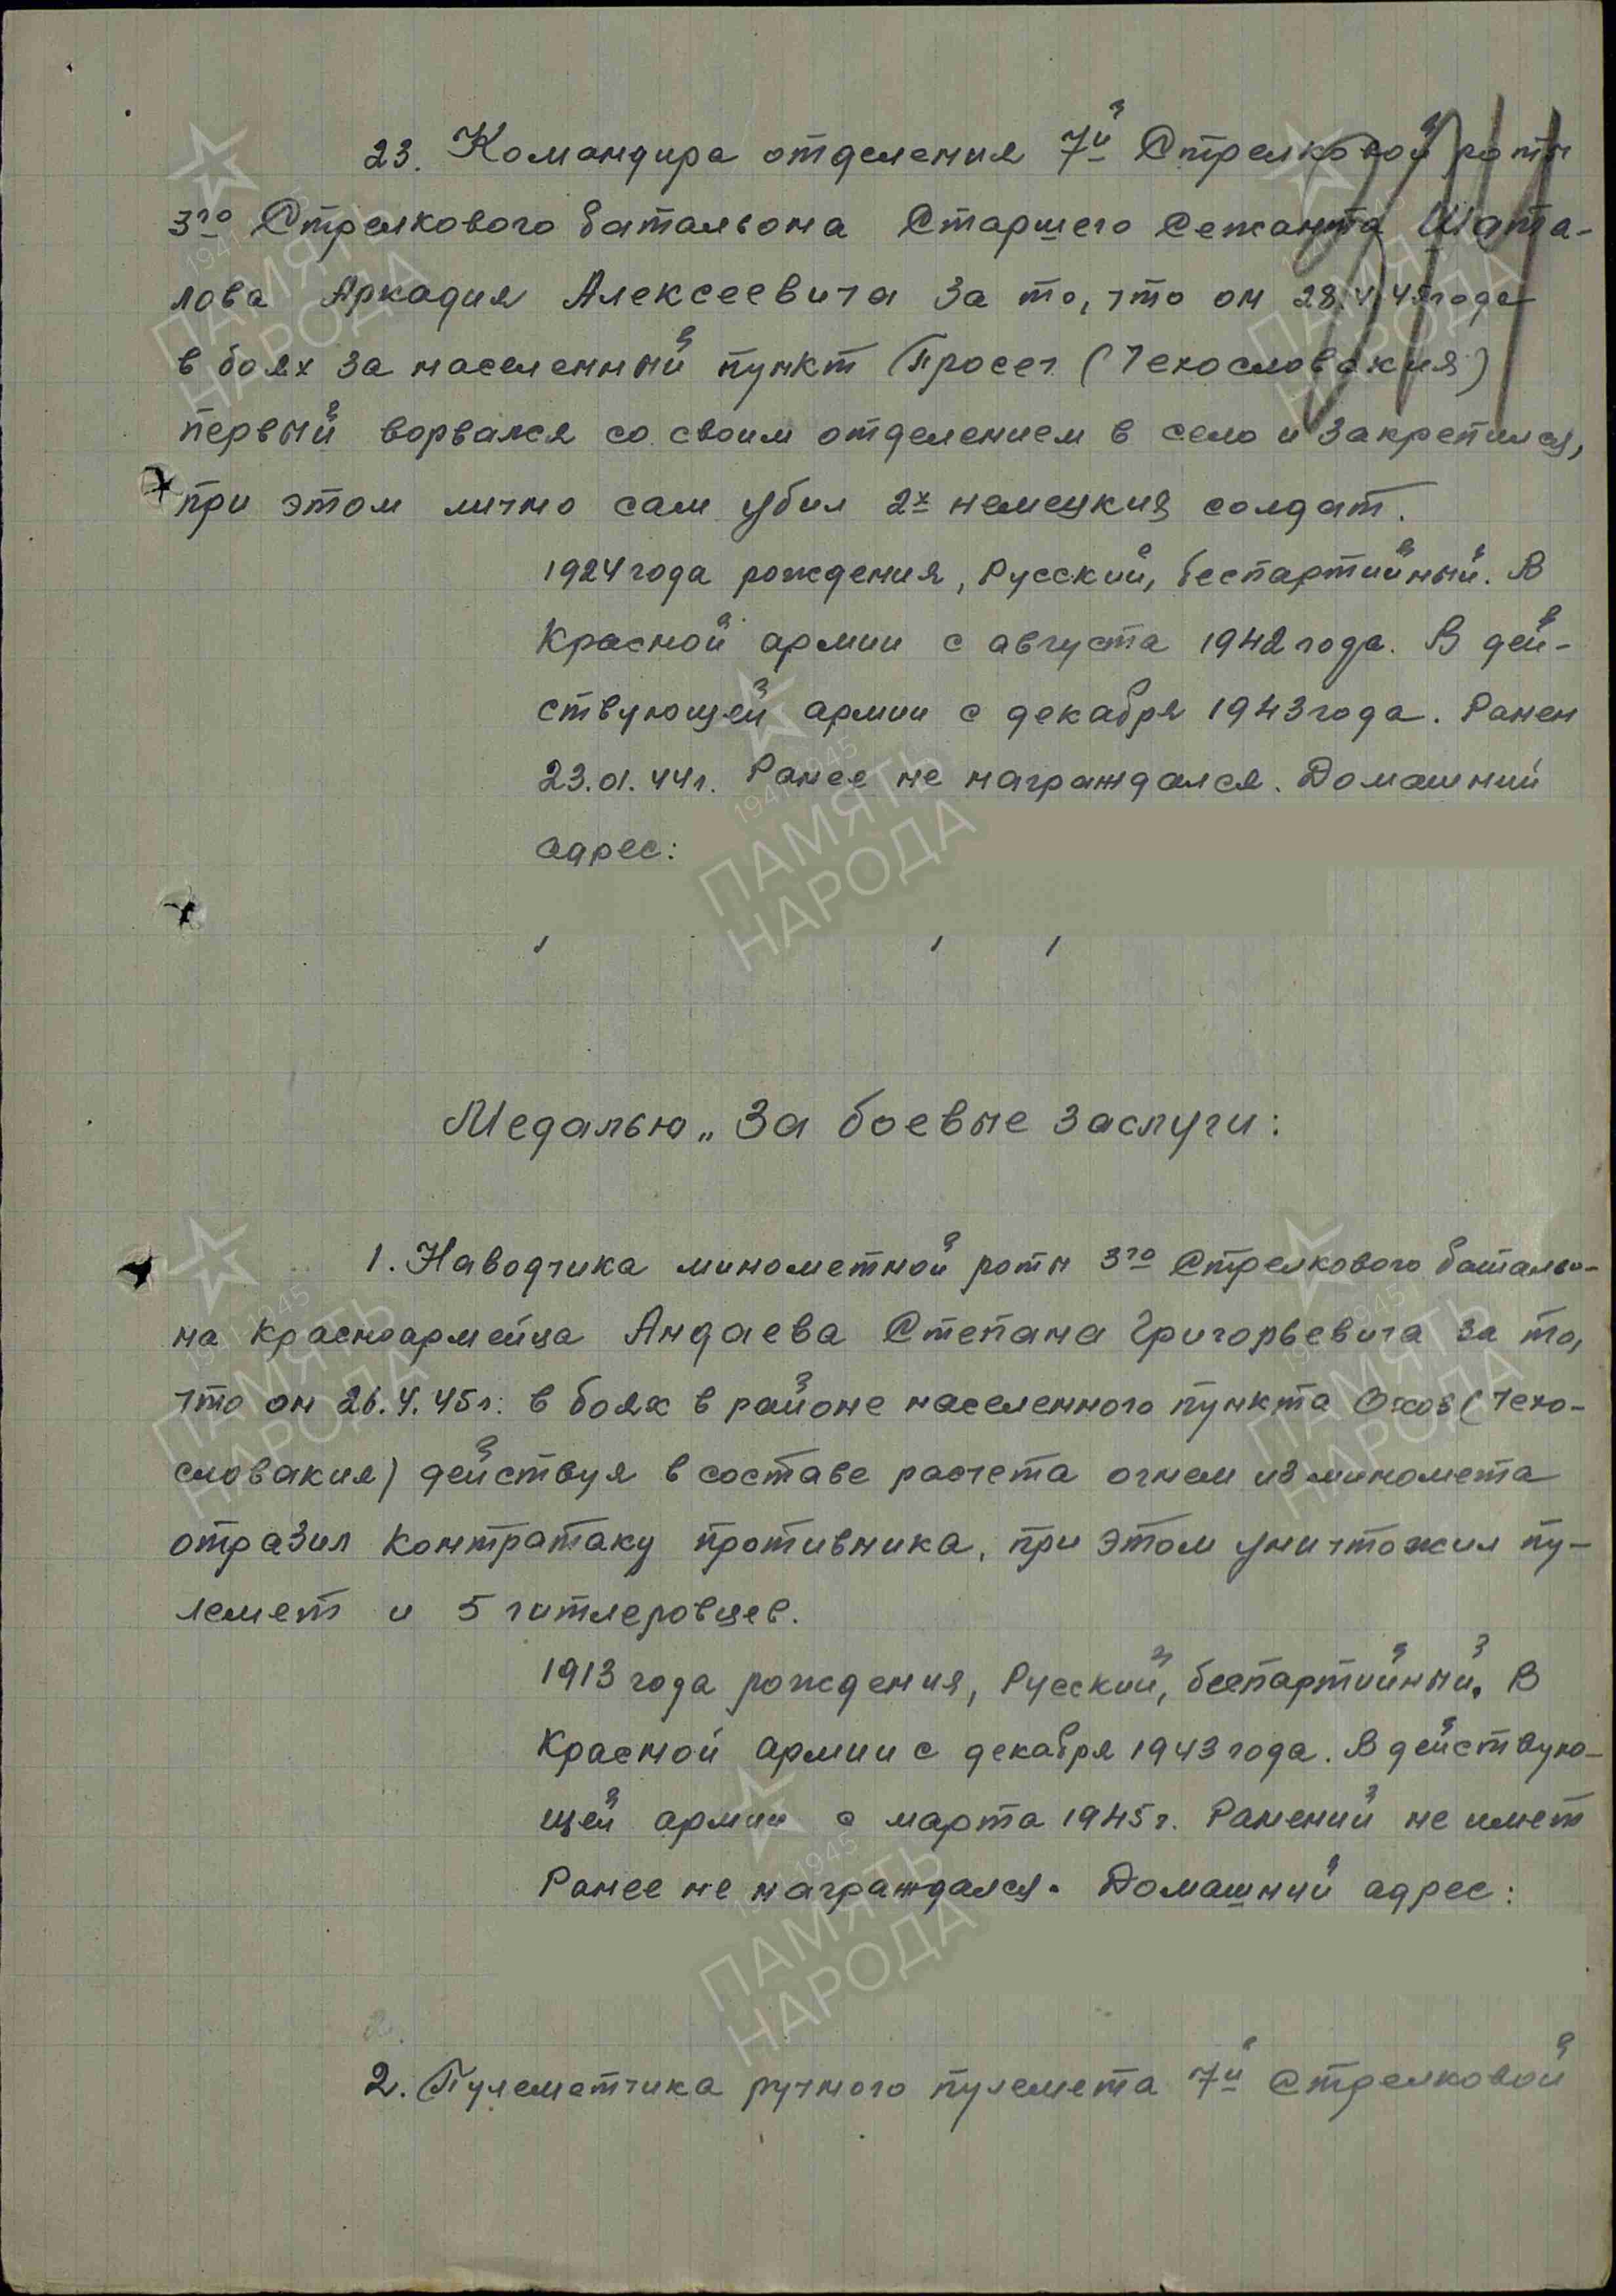 23. Командира отделения 7й Стрелковой роты
3го Стрелкового батальона Старшего Сежанта Шата-
лова Аркадия Алексеевича За то, что он 28.4.45 года
в боях за населенный пункт Просеч (Чехословакия)
первый ворвался со своим отделением в село и закрепился,
при этом лично сам убил 2х немецких солдат.
1924 года рождения, Русский, беспартийный. В
Красной армии с августа 1942 года. В дей-
ствующей армии с декабря 1943 года. Ранен
23.01.44 г. Ранее не награждался. Домашний
адрес:
Медалью „За боевые заслуги:
1. Наводчика минометной роты 3го Стрелкового батальо-
на красноармейца Андаева Степана Григорьевича за то,
что он 26.4.45 г. в боях в районе населенного пункта (Чехо-
словакия) действуя в составе расчета огнем из миномета
отразил контратаку противника, при этом уничтожил пу-
лемет и 5 гитлеровцев.
1913 года рождения, Русский, беспартийный. В
Красной армии с декабря 1943 года. В действую-
щей армии с марта 1945 г. Ранений не имет
Ранее не награждался. Домашний адрес:
2. Пулеметчика ручного пулемета 7й Стрелковой
1941 1945
ПАМЯТЬ
НАРОДА
1941 1945
ПАМЯТЬ
НАРОДА
1941 1945
ПАМЯТЬ
НАРОДА
1941 1945
ПАМЯТЬ
НАРОДА
1941 1945
ПАМЯТЬ
НАРОДА
1941 1945
ПАМЯТЬ
НАРОДА